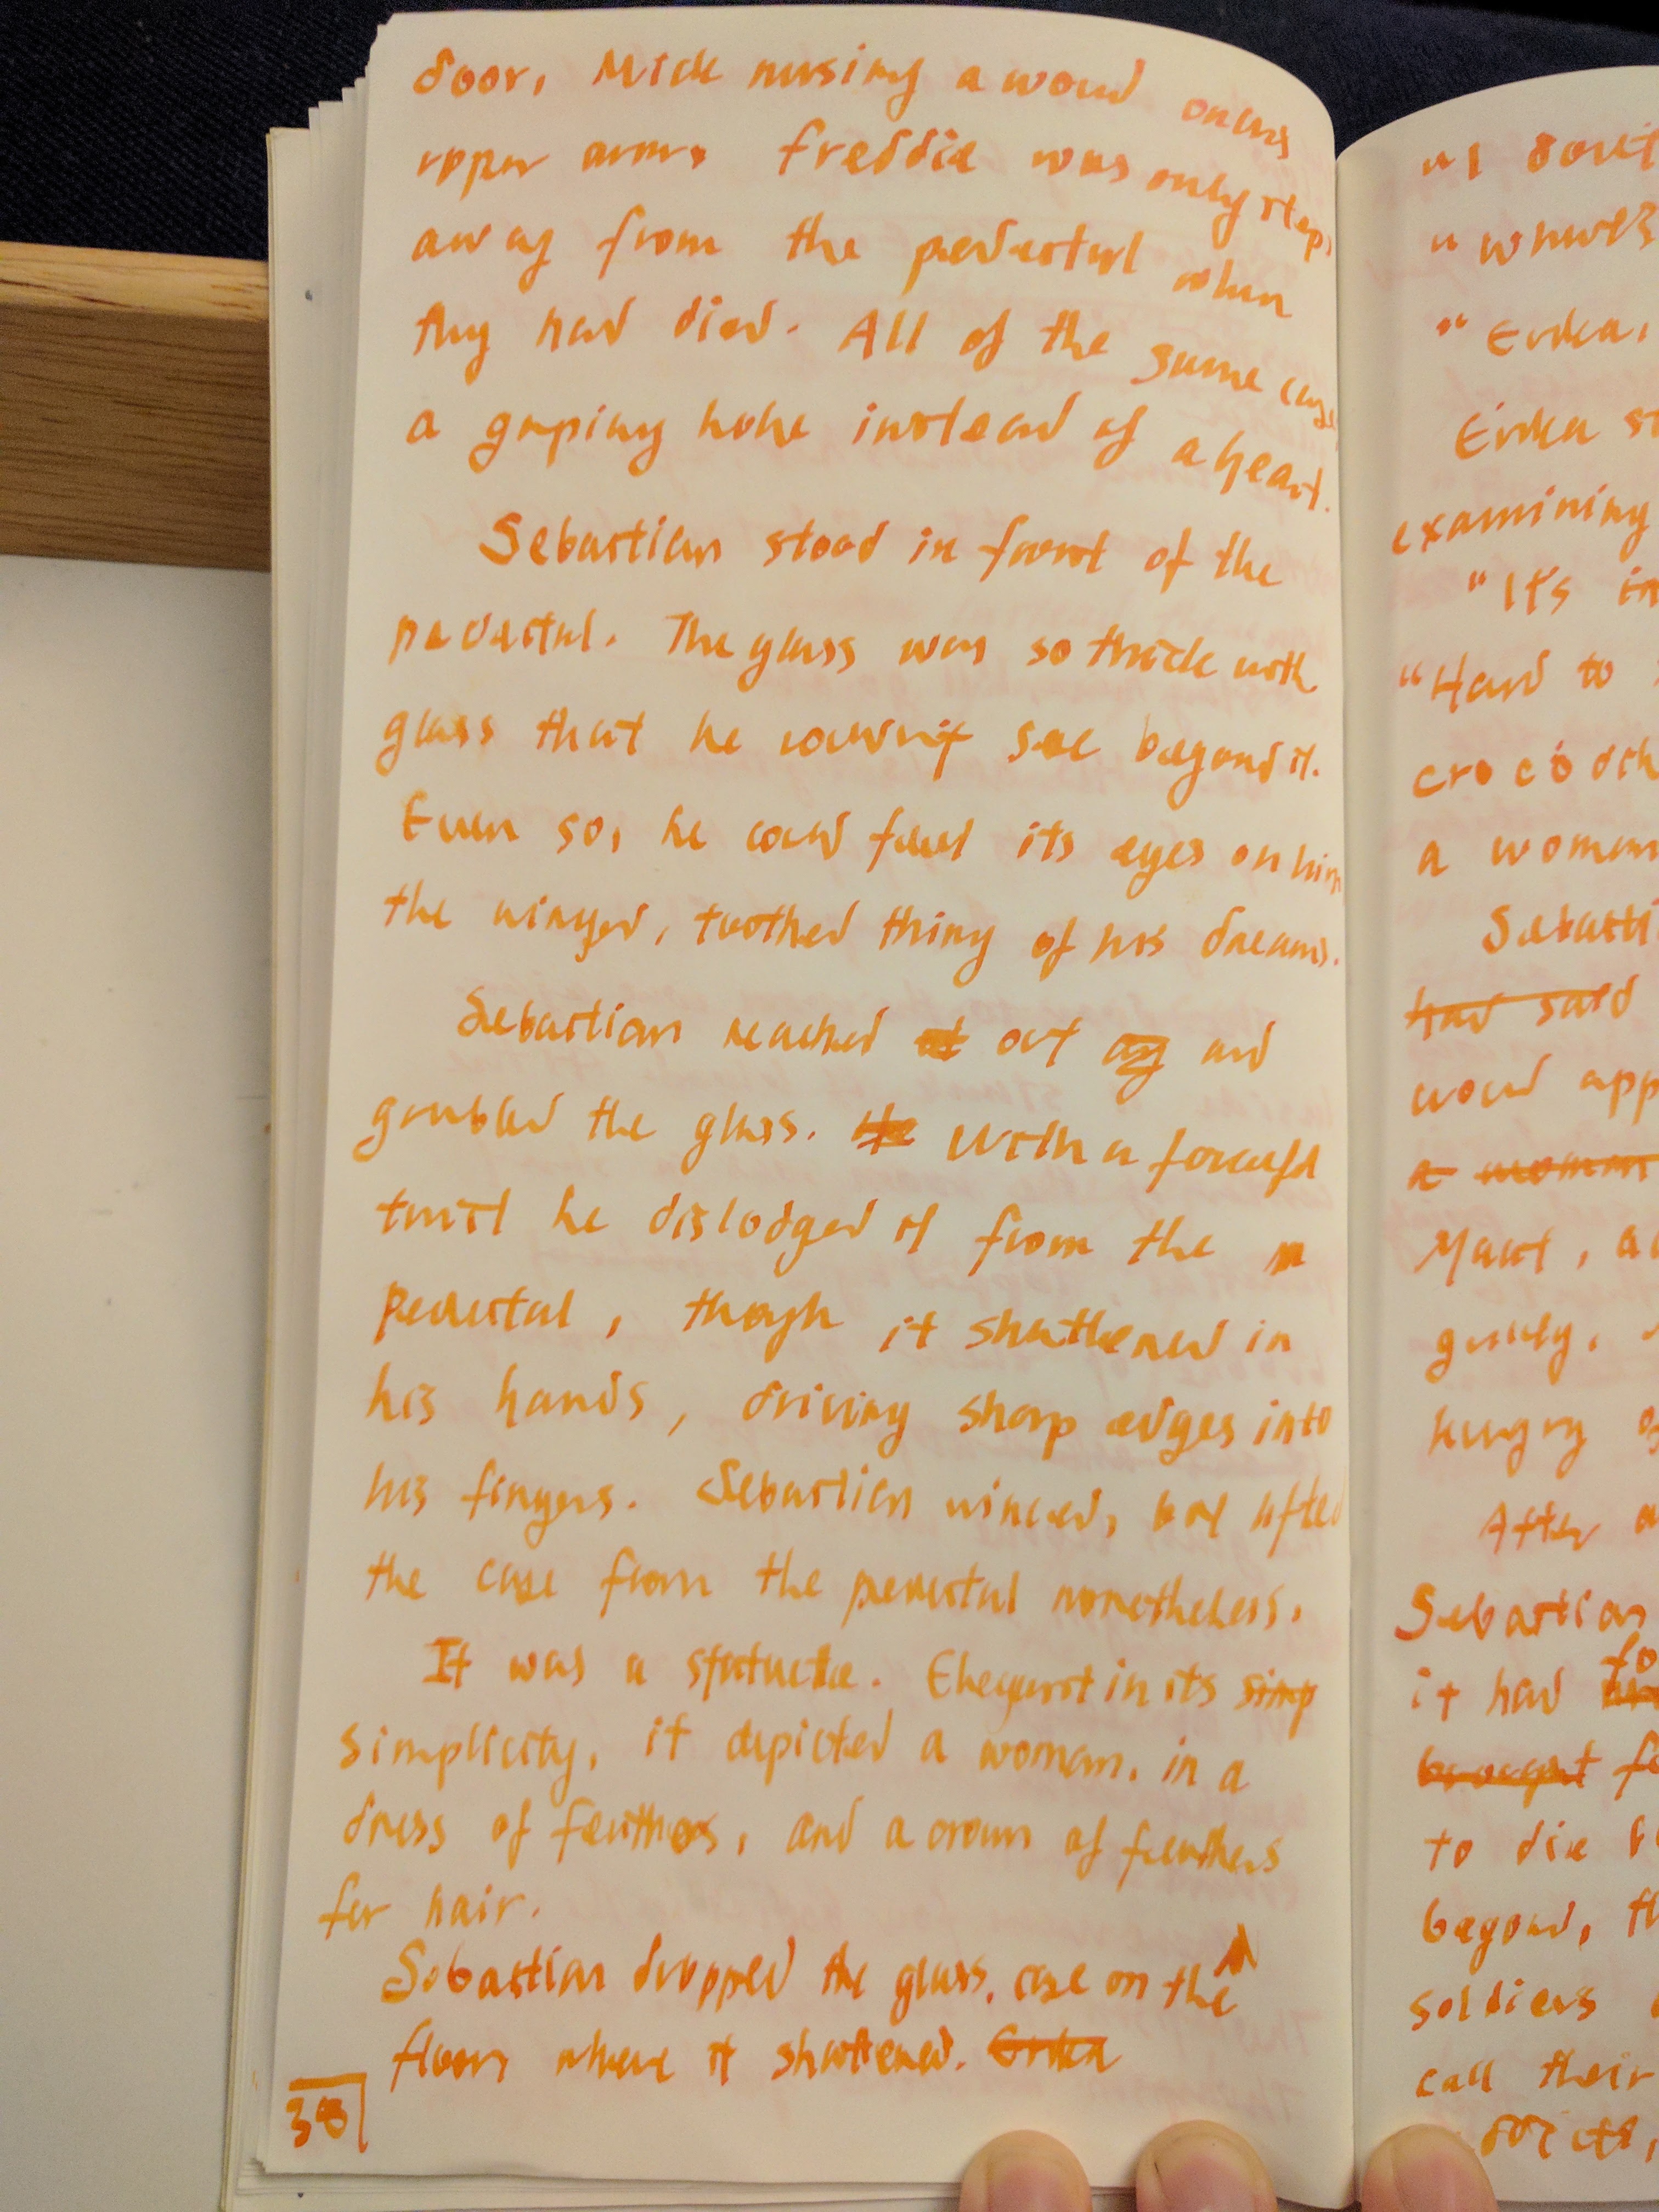 door, Mick nursing a wound on his
upper arm. Freddie was only steps
away from the pedestal when
they had died. All of the same cause
a gaping hole instead of a heart.
Sebastian stood in front of the
pedestal. The glass was so thick with
glass that he couldn't see beyond it.
Even so, he could feel its eyes on him
the winged, toothed thing of his dreams.
Sebastian reached at out ag and
grabbed the glass. He With a forceful
twist he dislodged it from the
pedestal, though it shattered in
his hands, driving sharp edges into
his fingers. Sebastian winced, but lifted
the case from the pedestal nonetheless.
It was a statuette. Elegant in its simp
simplicity, it depicted a woman, in a
dress of feathers, and a crown of feathers
for hair.
Sebastian dropped the glass case on the
floor where it shattered. Erika
38
"I don't
"
"Erika,
Erika
examining
"It's
"Hard to
a woman
had said
would
a woman
Maat,
hungry
After
Sebastian
it had
brought
to die
beyond,
soldiers
call their